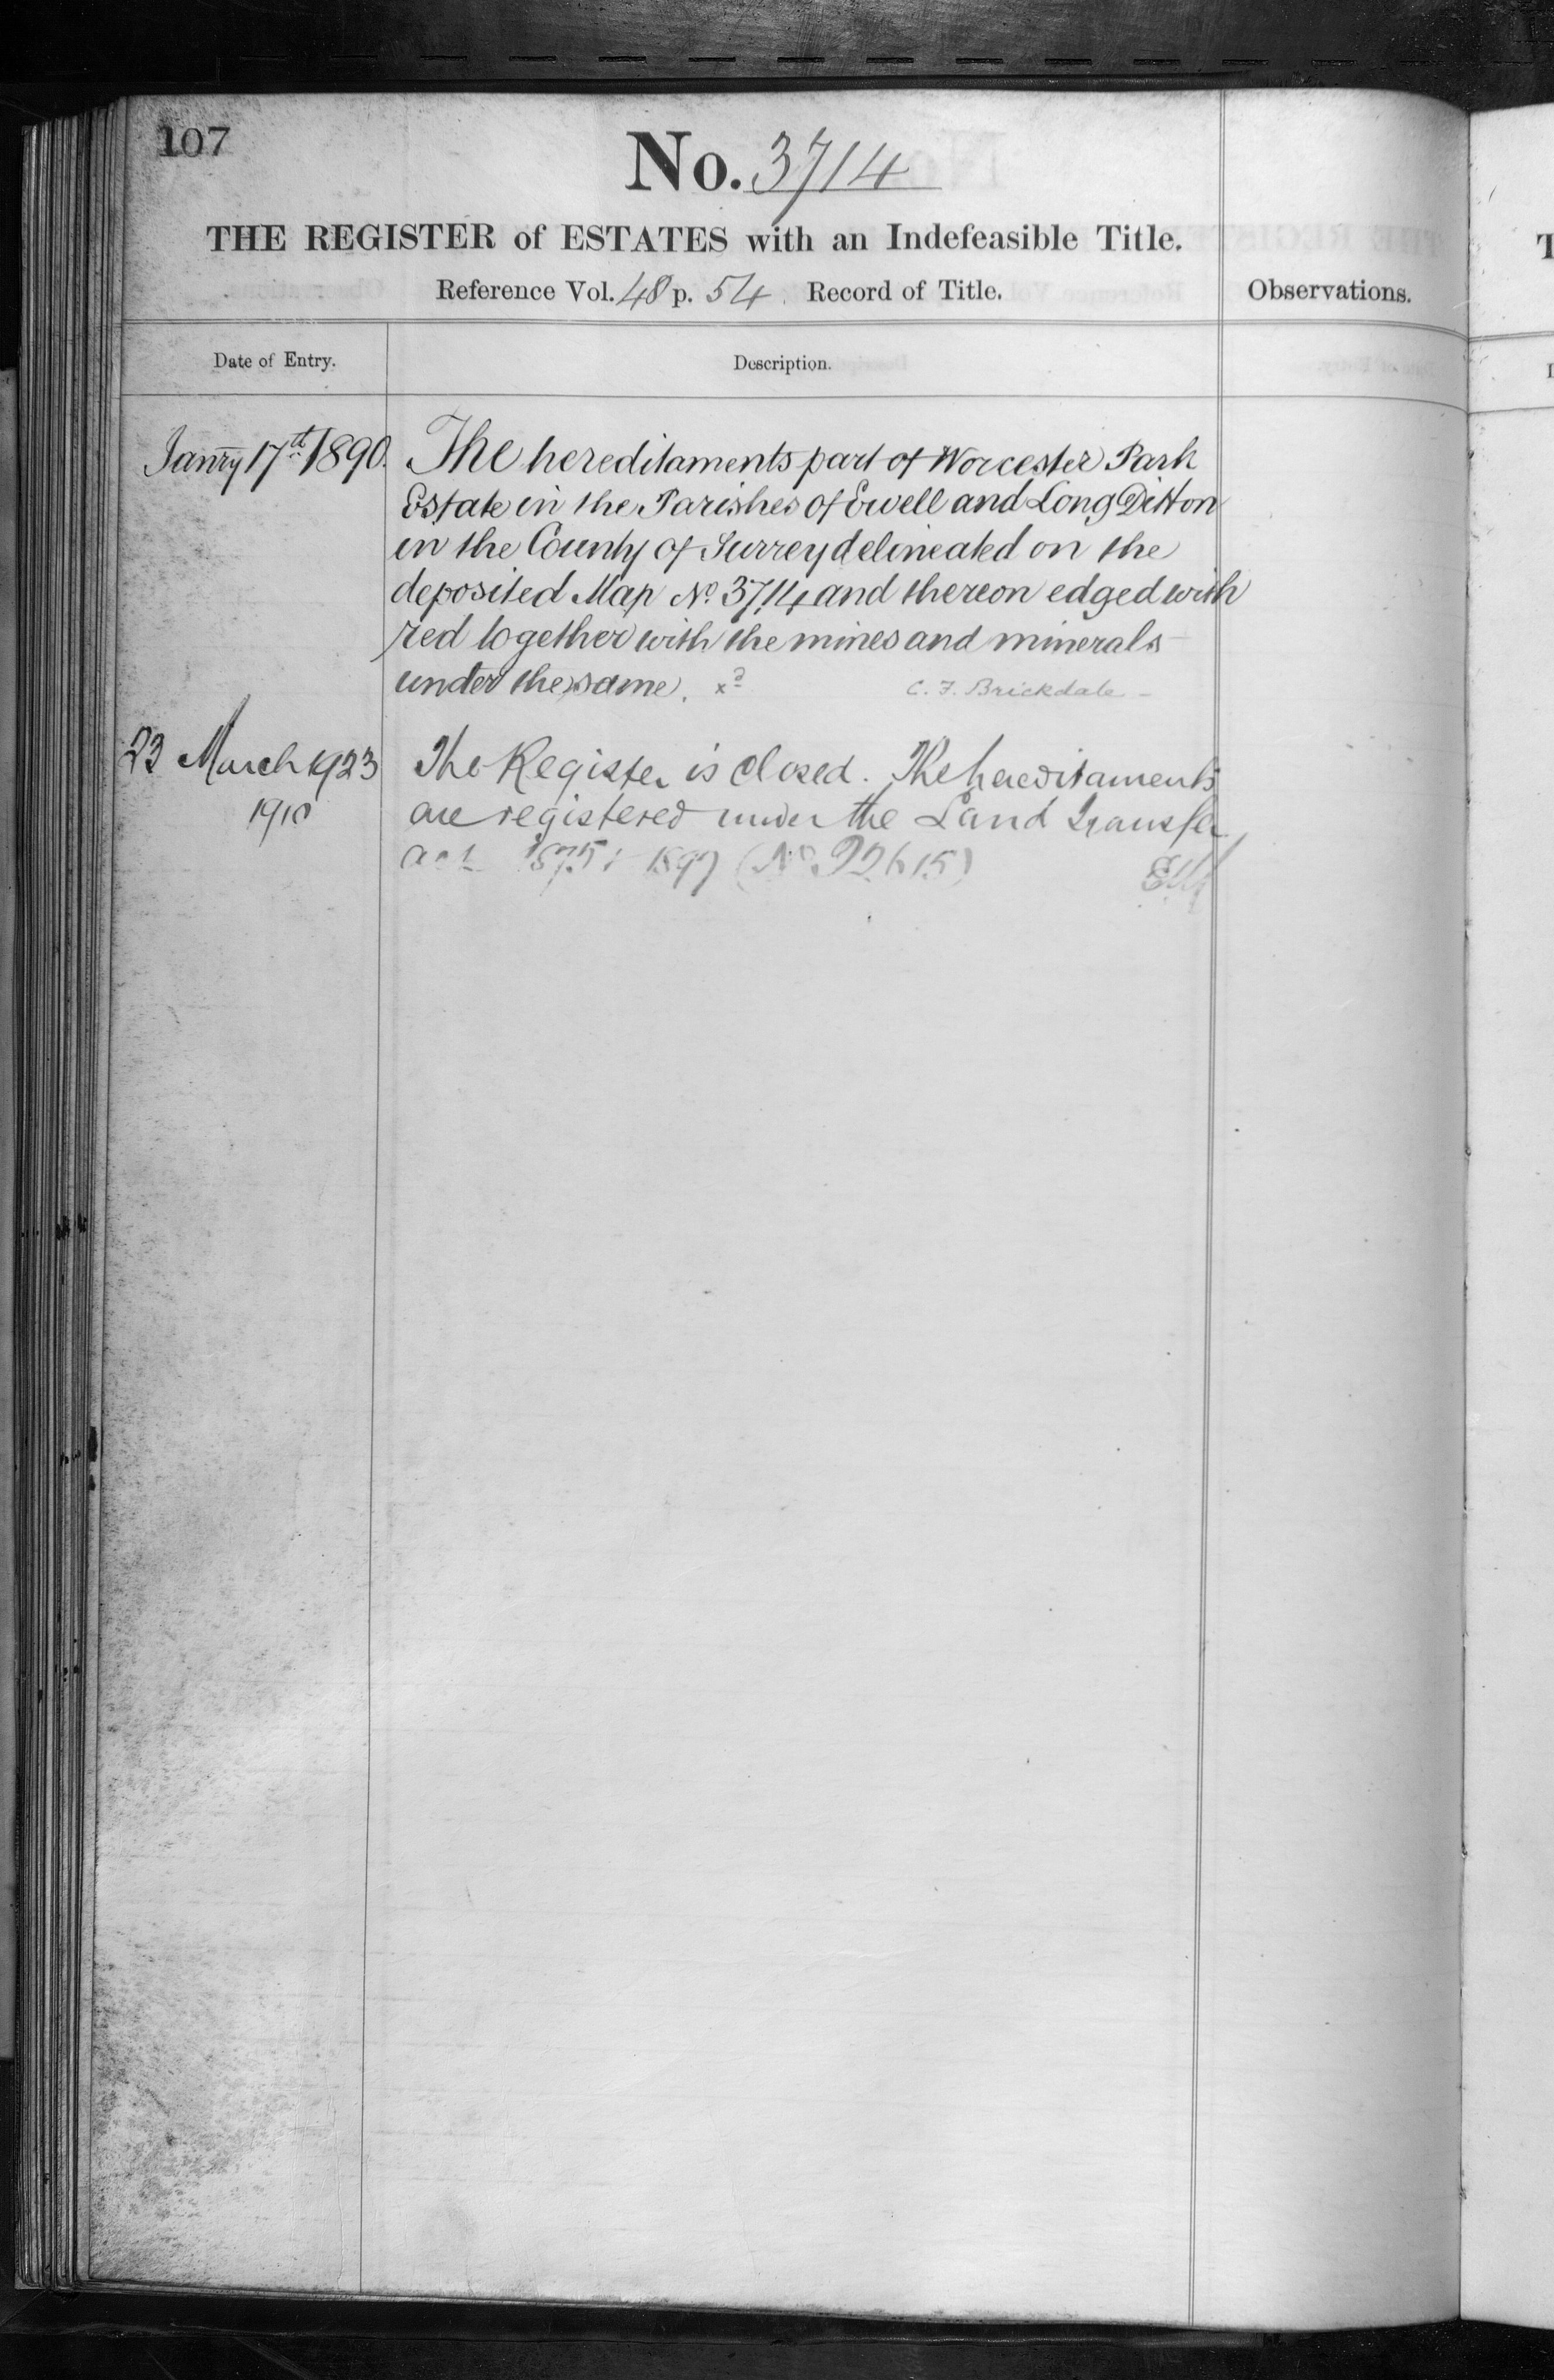 107
No. 3714
THE REGISTER of ESTATES with an Indefeasible Title.
Reference Vol. 48 p. 54 Record of Title.
Observations.
Date of Entry.
Description.
Janry 17th 1890. The hereditaments part of Worcester Park
Estate in the Parishes of Ewell and Long Ditton
in the County of Surrey delineated on the
deposited Map No. 3714 and thereon edged with
red together with the mines and minerals
under the same. xd C. F. Brickdale
23 March 1923 The Register is closed. The hereditaments
1910 are registered under the Land Transfer
act 1875 & 1897 (No. 92615)